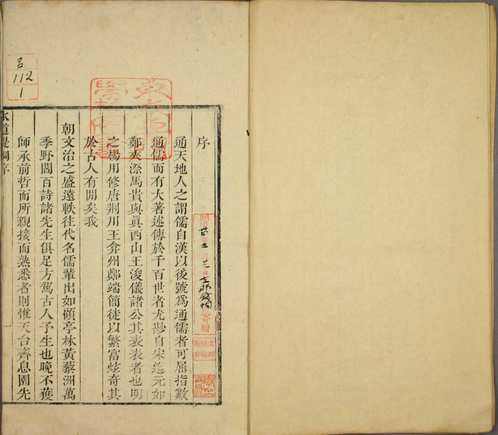 序
通天地人之謂儒自漢以後號爲通儒者可屈指數
通儒而有大著述傳於千百世者尤尠自宋迄元如
鄭夾漈馬貴與眞西山王浚儀諸公其表表者也明
之楊用修唐荊川王弇州鄭端簡徒以繁富炫奇其
於古人有閒矣我
朝文治之盛遠軼往代名儒輩出如顧亭林黃黎洲萬
季野閻百詩諸先生俱足方駕古人予生也晚不獲
師承前哲而所親接而熟悉者則惟天台齊息園先
水道提綱序
112
1